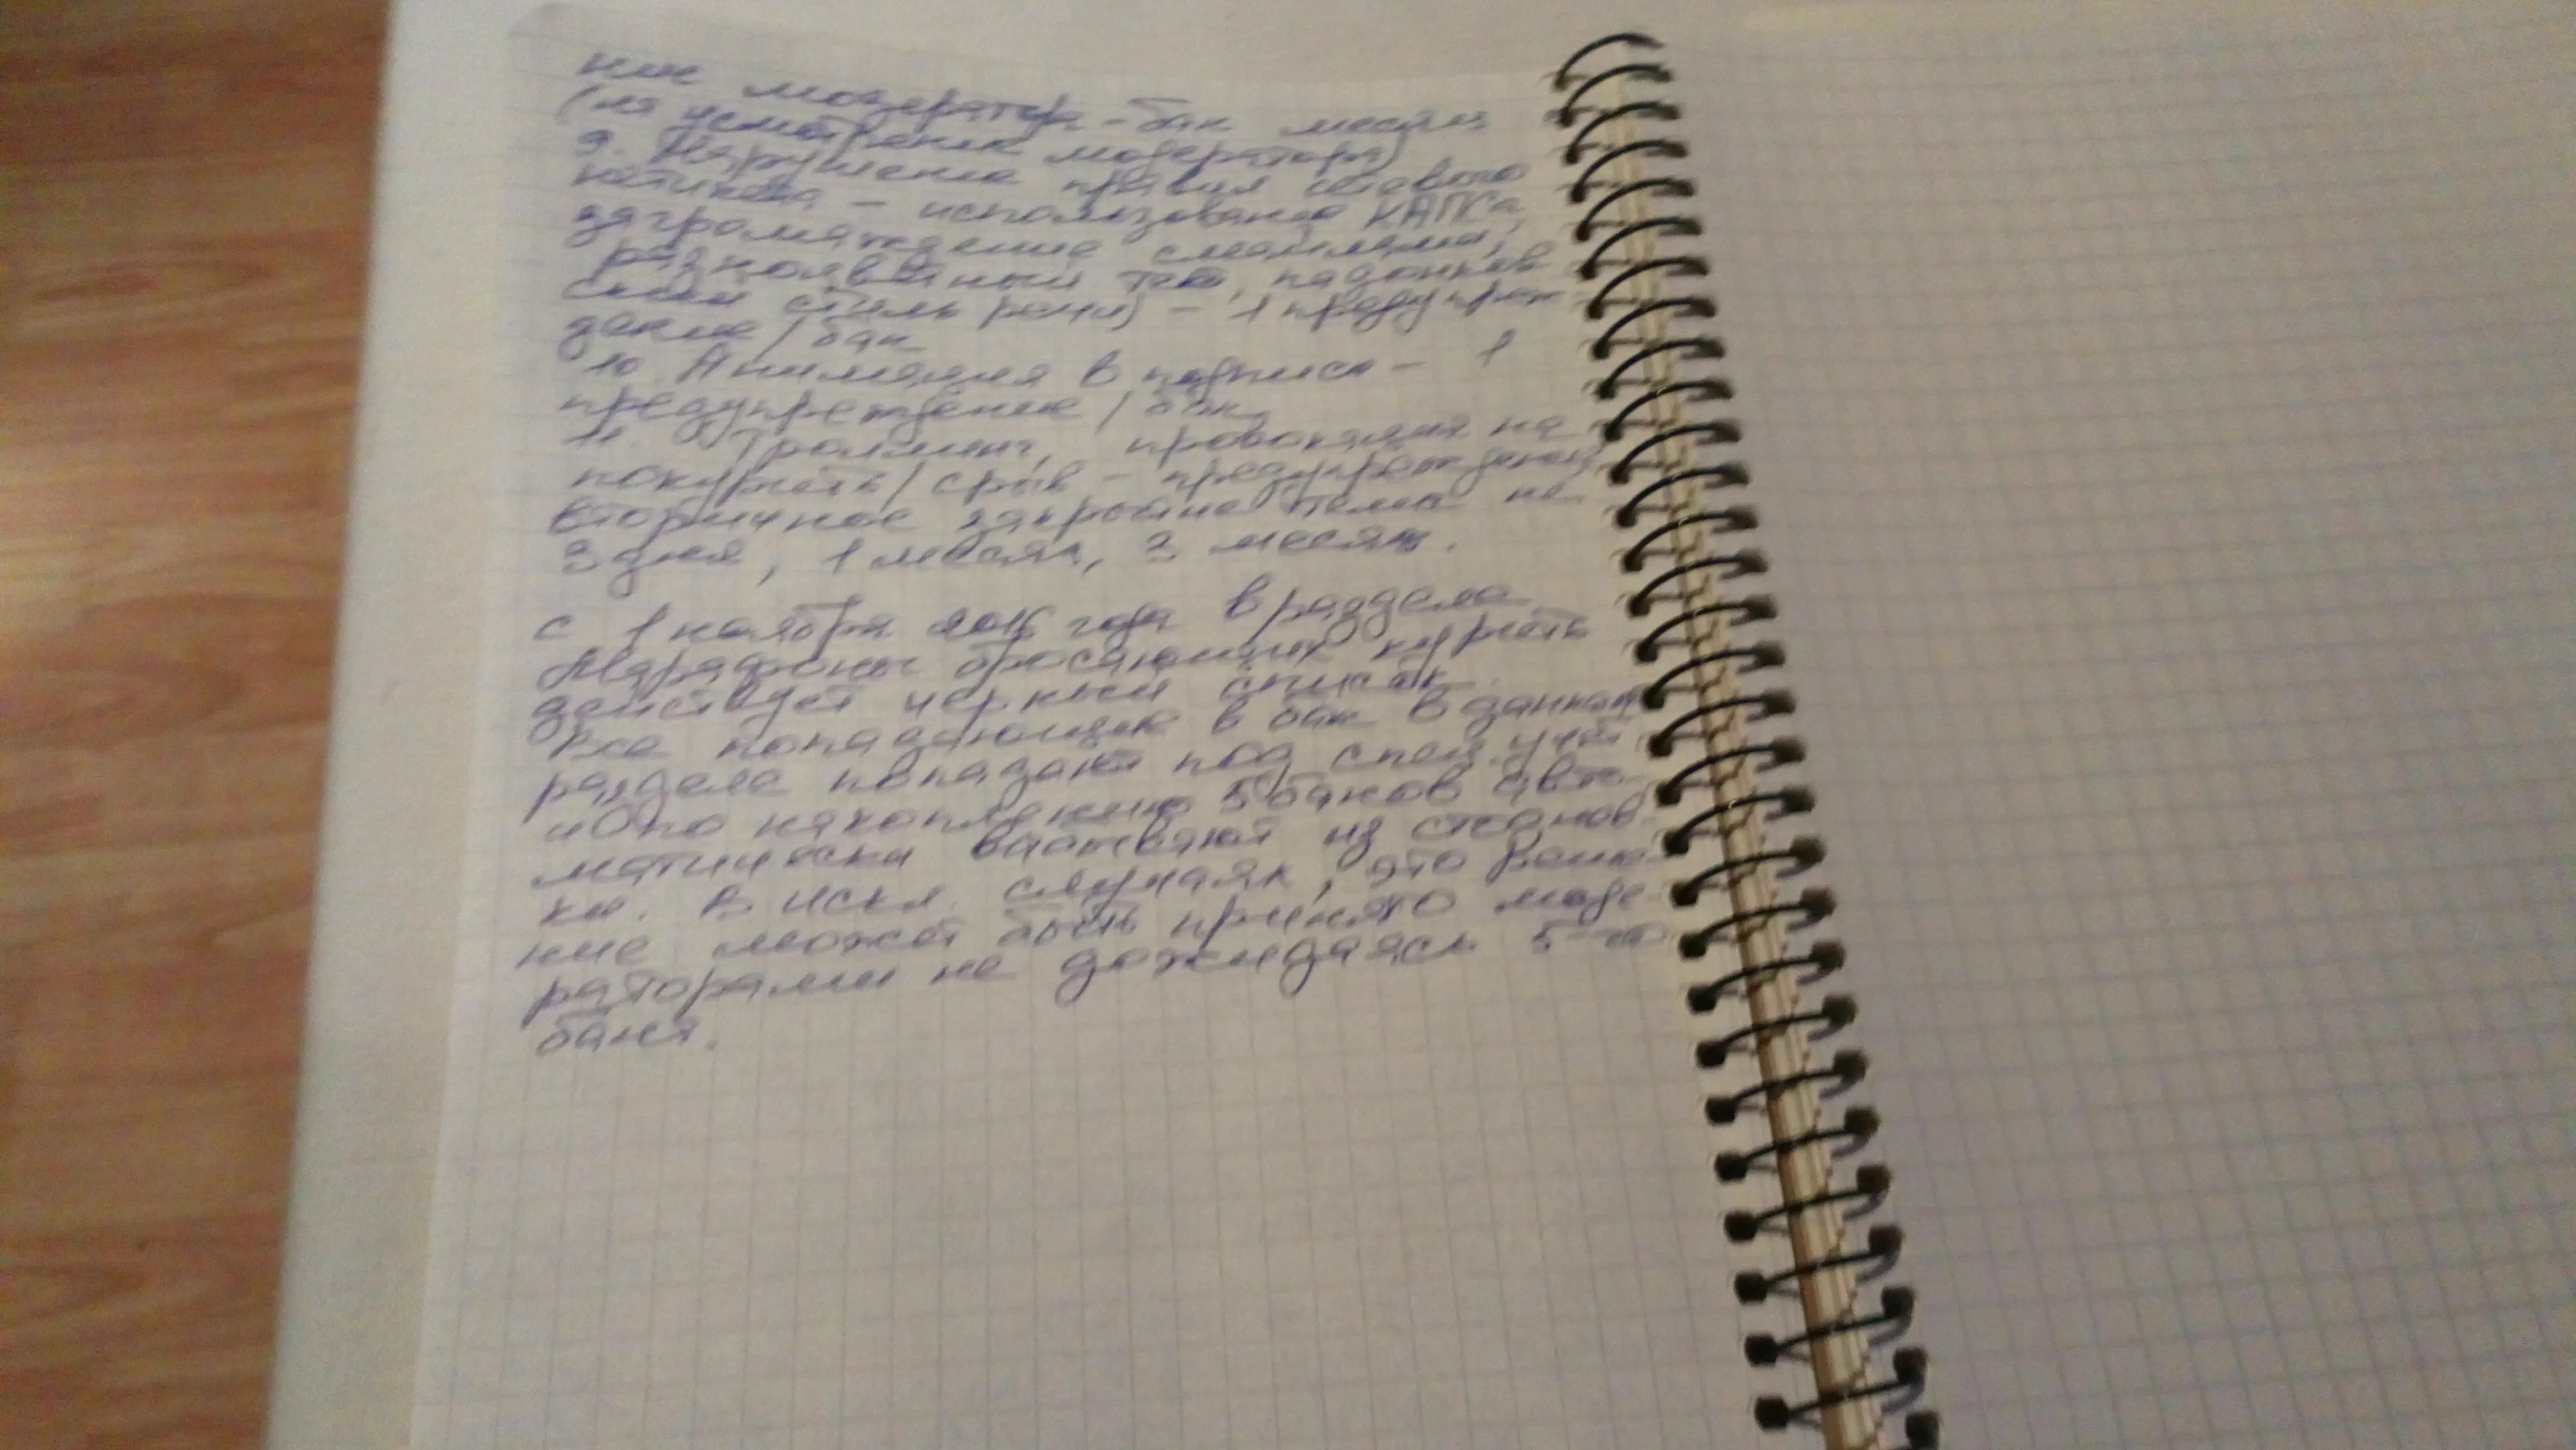 ние модератора - бан месяц
(на усмотрение модератора)
9. Нарушение правил сетевого
нетикета - использование КАПСа,
загромождение смайлами,
разноцветный текст, падонков
ский стиль речи) - 1 предупреж
дение / бан
10. Анимация в подписи - 1
предупреждение / бан.
11. Троллинг, провокация на
покурить / срыв - предупреждение
вторичное закрытие темы на
3 дня, 1 месяц, 3 месяца.
С 1 ноября года в разделе
Марафоны бросающих курить
действует черный список.
Все попадающие в бан в данном
разделе попадают под спец. учёт
и по накоплению 5 банов авто-
матически из
ки. В искл. случаях, это реше-
ние может быть принято моде-
раторами не дожидаясь 5-го
бана.